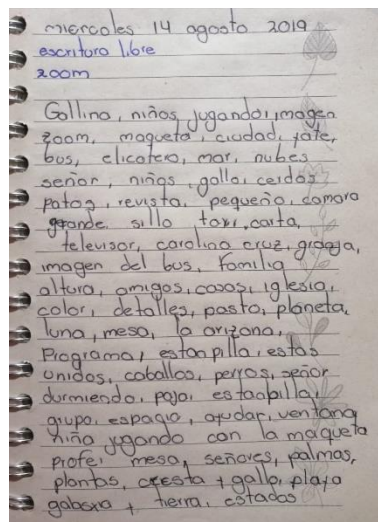 miercoles 14 agosto 2019
escritura libre
zoom
Gallina, niños jugando, imagen
zoom, maqueta, ciudad, yate,
bus, elicotero, mar, nubes
señor, niños, gallo, cerdos
patos, revista, pequeño, camara
grande, silla taxi, carta,
televisor, carolina cruz, granja,
imagen del bus, Familia
altura, amigos, casas, iglesia,
color, detalles, pasto, planeta,
luna, mesa, la arizona,
Programa, estanpilla, estas
unidos, caballos, perros, señor
durmiendo, paja, estanbilla,
grupo, espacio, ayudar, ventana
niña jugando con la maqueta
profe, mesa, señores, palmas,
plantas, cresta + gallo, playa
+ tierra, estados